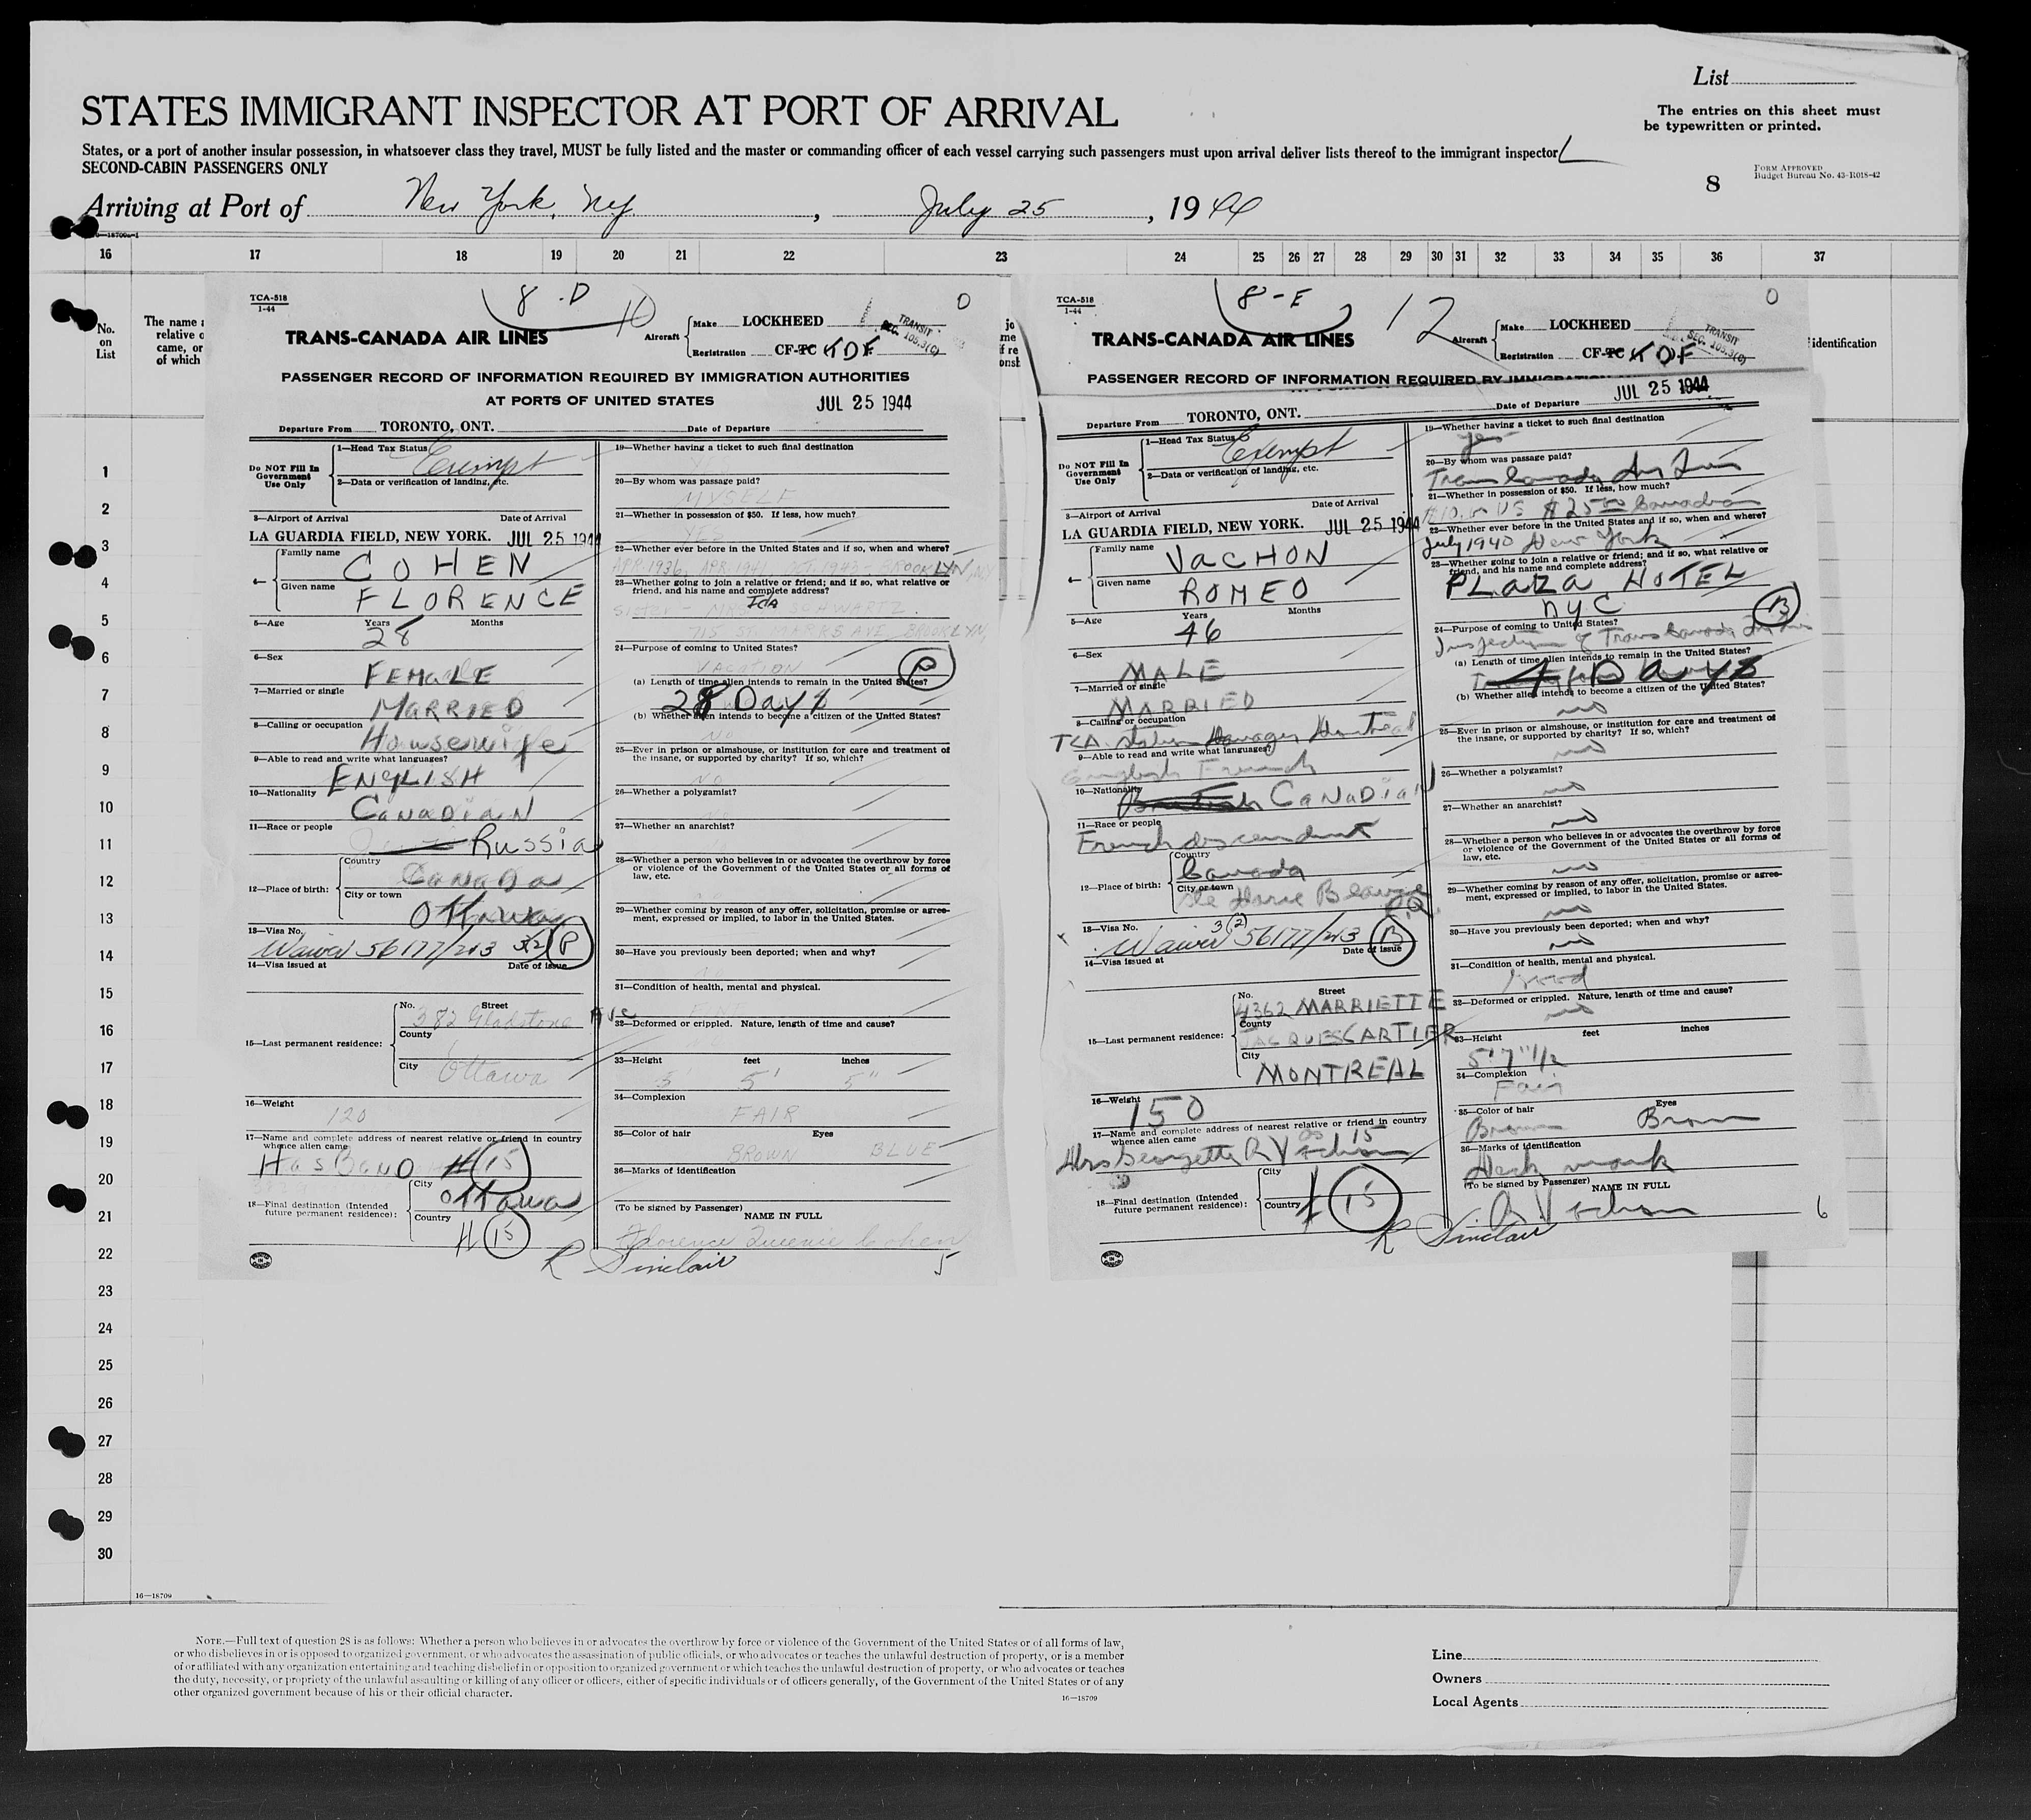 List
STATES IMMIGRANT INSPECTOR AT PORT OF ARRIVAL
The entries on this sheet must
be typewritten or printed.
States, or a port of another insular possession, in whatsoever class they travel, MUST be fully listed and the master or commanding officer of each vessel carrying such passengers must upon arrival deliver lists thereof to the immigrant inspector
SECOND-CABIN PASSENGERS ONLY
8
FORM APPROVED
Budget Bureau No. 43-R018-42
Arriving at Port of New York, NY. , July 25 , 1944
16 17 18 19 20 21 22 23 24 25 26 27 28 29 30 31 32 33 34 35 36 37
No.
on
List
The name a
relative o
came, or
of which
identification
1
2
3
4
5
6
7
8
9
10
11
12
13
14
15
16
17
18
19
20
21
22
23
24
25
26
27
28
29
30
TCA-518
1-44
8-D
10
0
TRANS-CANADA AIR LINES
Aircraft
Make LOCKHEED
Registration CF-TC TDF
TRANSIT
SEC. 105.3(C)
PASSENGER RECORD OF INFORMATION REQUIRED BY IMMIGRATION AUTHORITIES
AT PORTS OF UNITED STATES
JUL 25 1944
Departure From TORONTO, ONT. Date of Departure
Do NOT Fill In
Government
Use Only
1—Head Tax Status Exempt
2—Data or verification of landing, etc.
3—Airport of Arrival Date of Arrival
LA GUARDIA FIELD, NEW YORK. JUL 25 1944
4—
Family name COHEN
Given name FLORENCE
5—Age Years Months
28
6—Sex
FEMALE
7—Married or single
MARRIED
8—Calling or occupation
Housewife
9—Able to read and write what languages?
ENGLISH
10—Nationality
CANADIAN
11—Race or people
Russia
12—Place of birth:
Country
Canada
City or town
Ottawa
13—Visa No.
Waiver 56177/213 3(2) P
14—Visa issued at Date of issue
15—Last permanent residence:
No. Street
382 Gladstone Ave
County
City Ottawa
16—Weight
120
17—Name and complete address of nearest relative or friend in country
whence alien came
HUSBAND # 15
18—Final destination (Intended
future permanent residence):
City
Ottawa
Country
# 15
19—Whether having a ticket to such final destination
20—By whom was passage paid?
MYSELF
21—Whether in possession of $50. If less, how much?
YES
22—Whether ever before in the United States and if so, when and where?
APR. 1936, APR. 1941, OCT. 1943 - BROOKLYN, NY
23—Whether going to join a relative or friend; and if so, what relative or
friend, and his name and complete address?
Sister - MRS IDA SCHWARTZ.
715 ST. MARKS AVE, BROOKLYN,
24—Purpose of coming to United States?
VACATION P
(a) Length of time alien intends to remain in the United States?
28 Days
(b) Whether alien intends to become a citizen of the United States?
NO
25—Ever in prison or almshouse, or institution for care and treatment of
the insane, or supported by charity? If so, which?
NO
26—Whether a polygamist?
27—Whether an anarchist?
28—Whether a person who believes in or advocates the overthrow by force
or violence of the Government of the United States or all forms of
law, etc.
29—Whether coming by reason of any offer, solicitation, promise or agree-
ment, expressed or implied, to labor in the United States.
30—Have you previously been deported; when and why?
31—Condition of health, mental and physical.
32—Deformed or crippled. Nature, length of time and cause?
33—Height feet inches
5' 5"
34—Complexion
FAIR
35—Color of hair Eyes
BROWN BLUE
36—Marks of identification
(To be signed by Passenger) NAME IN FULL
Florence Queenie Cohen
R Sinclair
5
TCA-518
1-44
8-E
12
0
TRANS-CANADA AIR LINES
Aircraft
Make LOCKHEED
Registration CF-TC TDF
TRANSIT
SEC. 105.3(C)
PASSENGER RECORD OF INFORMATION REQUIRED BY IMMIGRATION
JUL 25 1944
Departure From TORONTO, ONT. Date of Departure
Do NOT Fill In
Government
Use Only
1—Head Tax Status Exempt
2—Data or verification of landing, etc.
3—Airport of Arrival Date of Arrival
LA GUARDIA FIELD, NEW YORK. JUL 25 1944
4—
Family name VACHON
Given name ROMEO
5—Age Years Months
46
6—Sex
MALE
7—Married or single
MARRIED
8—Calling or occupation
TCA Station Manager Montreal
9—Able to read and write what languages?
English French
10—Nationality
British CANADIAN
11—Race or people
French descendant
12—Place of birth:
Country
Canada
City or town
Ste Marie Beauce P.Q.
13—Visa No.
Waiver 3(2) 56177/213 B
14—Visa issued at Date of issue
15—Last permanent residence:
No. Street
4362 MARRIETTE
County
JACQUES CARTIER
City
MONTREAL
16—Weight
150
17—Name and complete address of nearest relative or friend in country
whence alien came as 15
Mrs Georgette R Vachon
18—Final destination (Intended
future permanent residence):
City
Country # 15
19—Whether having a ticket to such final destination
yes
20—By whom was passage paid?
Trans Canada Air Lines
21—Whether in possession of $50. If less, how much?
$10.00 US $25.00 Canadian
22—Whether ever before in the United States and if so, when and where?
July 1940 New York
23—Whether going to join a relative or friend; and if so, what relative or
friend, and his name and complete address?
PLAZA HOTEL
NYC B
24—Purpose of coming to United States?
Inspection of Trans Canada Air Lines
(a) Length of time alien intends to remain in the United States?
4 Days
(b) Whether alien intends to become a citizen of the United States?
no
25—Ever in prison or almshouse, or institution for care and treatment of
the insane, or supported by charity? If so, which?
no
26—Whether a polygamist?
no
27—Whether an anarchist?
no
28—Whether a person who believes in or advocates the overthrow by force
or violence of the Government of the United States or all forms of
law, etc.
no
29—Whether coming by reason of any offer, solicitation, promise or agree-
ment, expressed or implied, to labor in the United States.
no
30—Have you previously been deported; when and why?
no
31—Condition of health, mental and physical.
Good
32—Deformed or crippled. Nature, length of time and cause?
no
33—Height feet inches
5'7"1/2
34—Complexion
Fair
35—Color of hair Eyes
Brown Brown
36—Marks of identification
Neck mark
(To be signed by Passenger) NAME IN FULL
R Vachon
R Sinclair
6
16—18709
NOTE.—Full text of question 28 is as follows: Whether a person who believes in or advocates the overthrow by force or violence of the Government of the United States or of all forms of law,
or who disbelieves in or is opposed to organized government, or who advocates the assassination of public officials, or who advocates or teaches the unlawful destruction of property, or is a member
of or affiliated with any organization entertaining and teaching disbelief in or opposition to organized government or which teaches the unlawful destruction of property, or who advocates or teaches
the duty, necessity, or propriety of the unlawful assaulting or killing of any officer or officers, either of specific individuals or of officers generally, of the Government of the United States or of any
other organized government because of his or their official character.
16—18709
Line
Owners
Local Agents